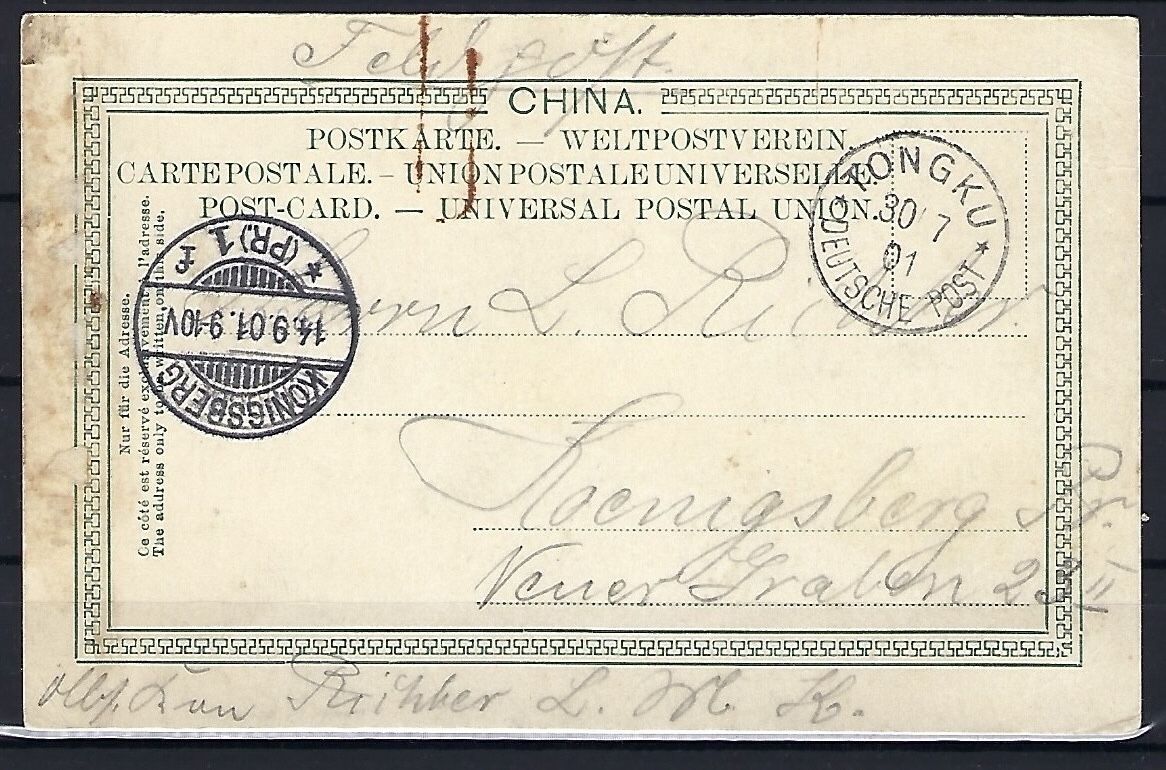 Feldpost.
CHINA.
POSTKARTE. — WELTPOSTVEREIN.
CARTE POSTALE. – UNION POSTALE UNIVERSELLE.
POST-CARD. — UNIVERSAL POSTAL UNION.
TONGKU
30/7
01
* DEUTSCHE POST *
* (PR.) 1 f
14.9.01.9-10V
KÖNIGSBERG
Nur für die Adresse.
Ce côté est réservé exclusivement à l'adresse.
The address only to be written on this side.
Herrn L. Richter
Koenigsberg Pr.
Neuer Graben 23 II
Richter L. M. K.